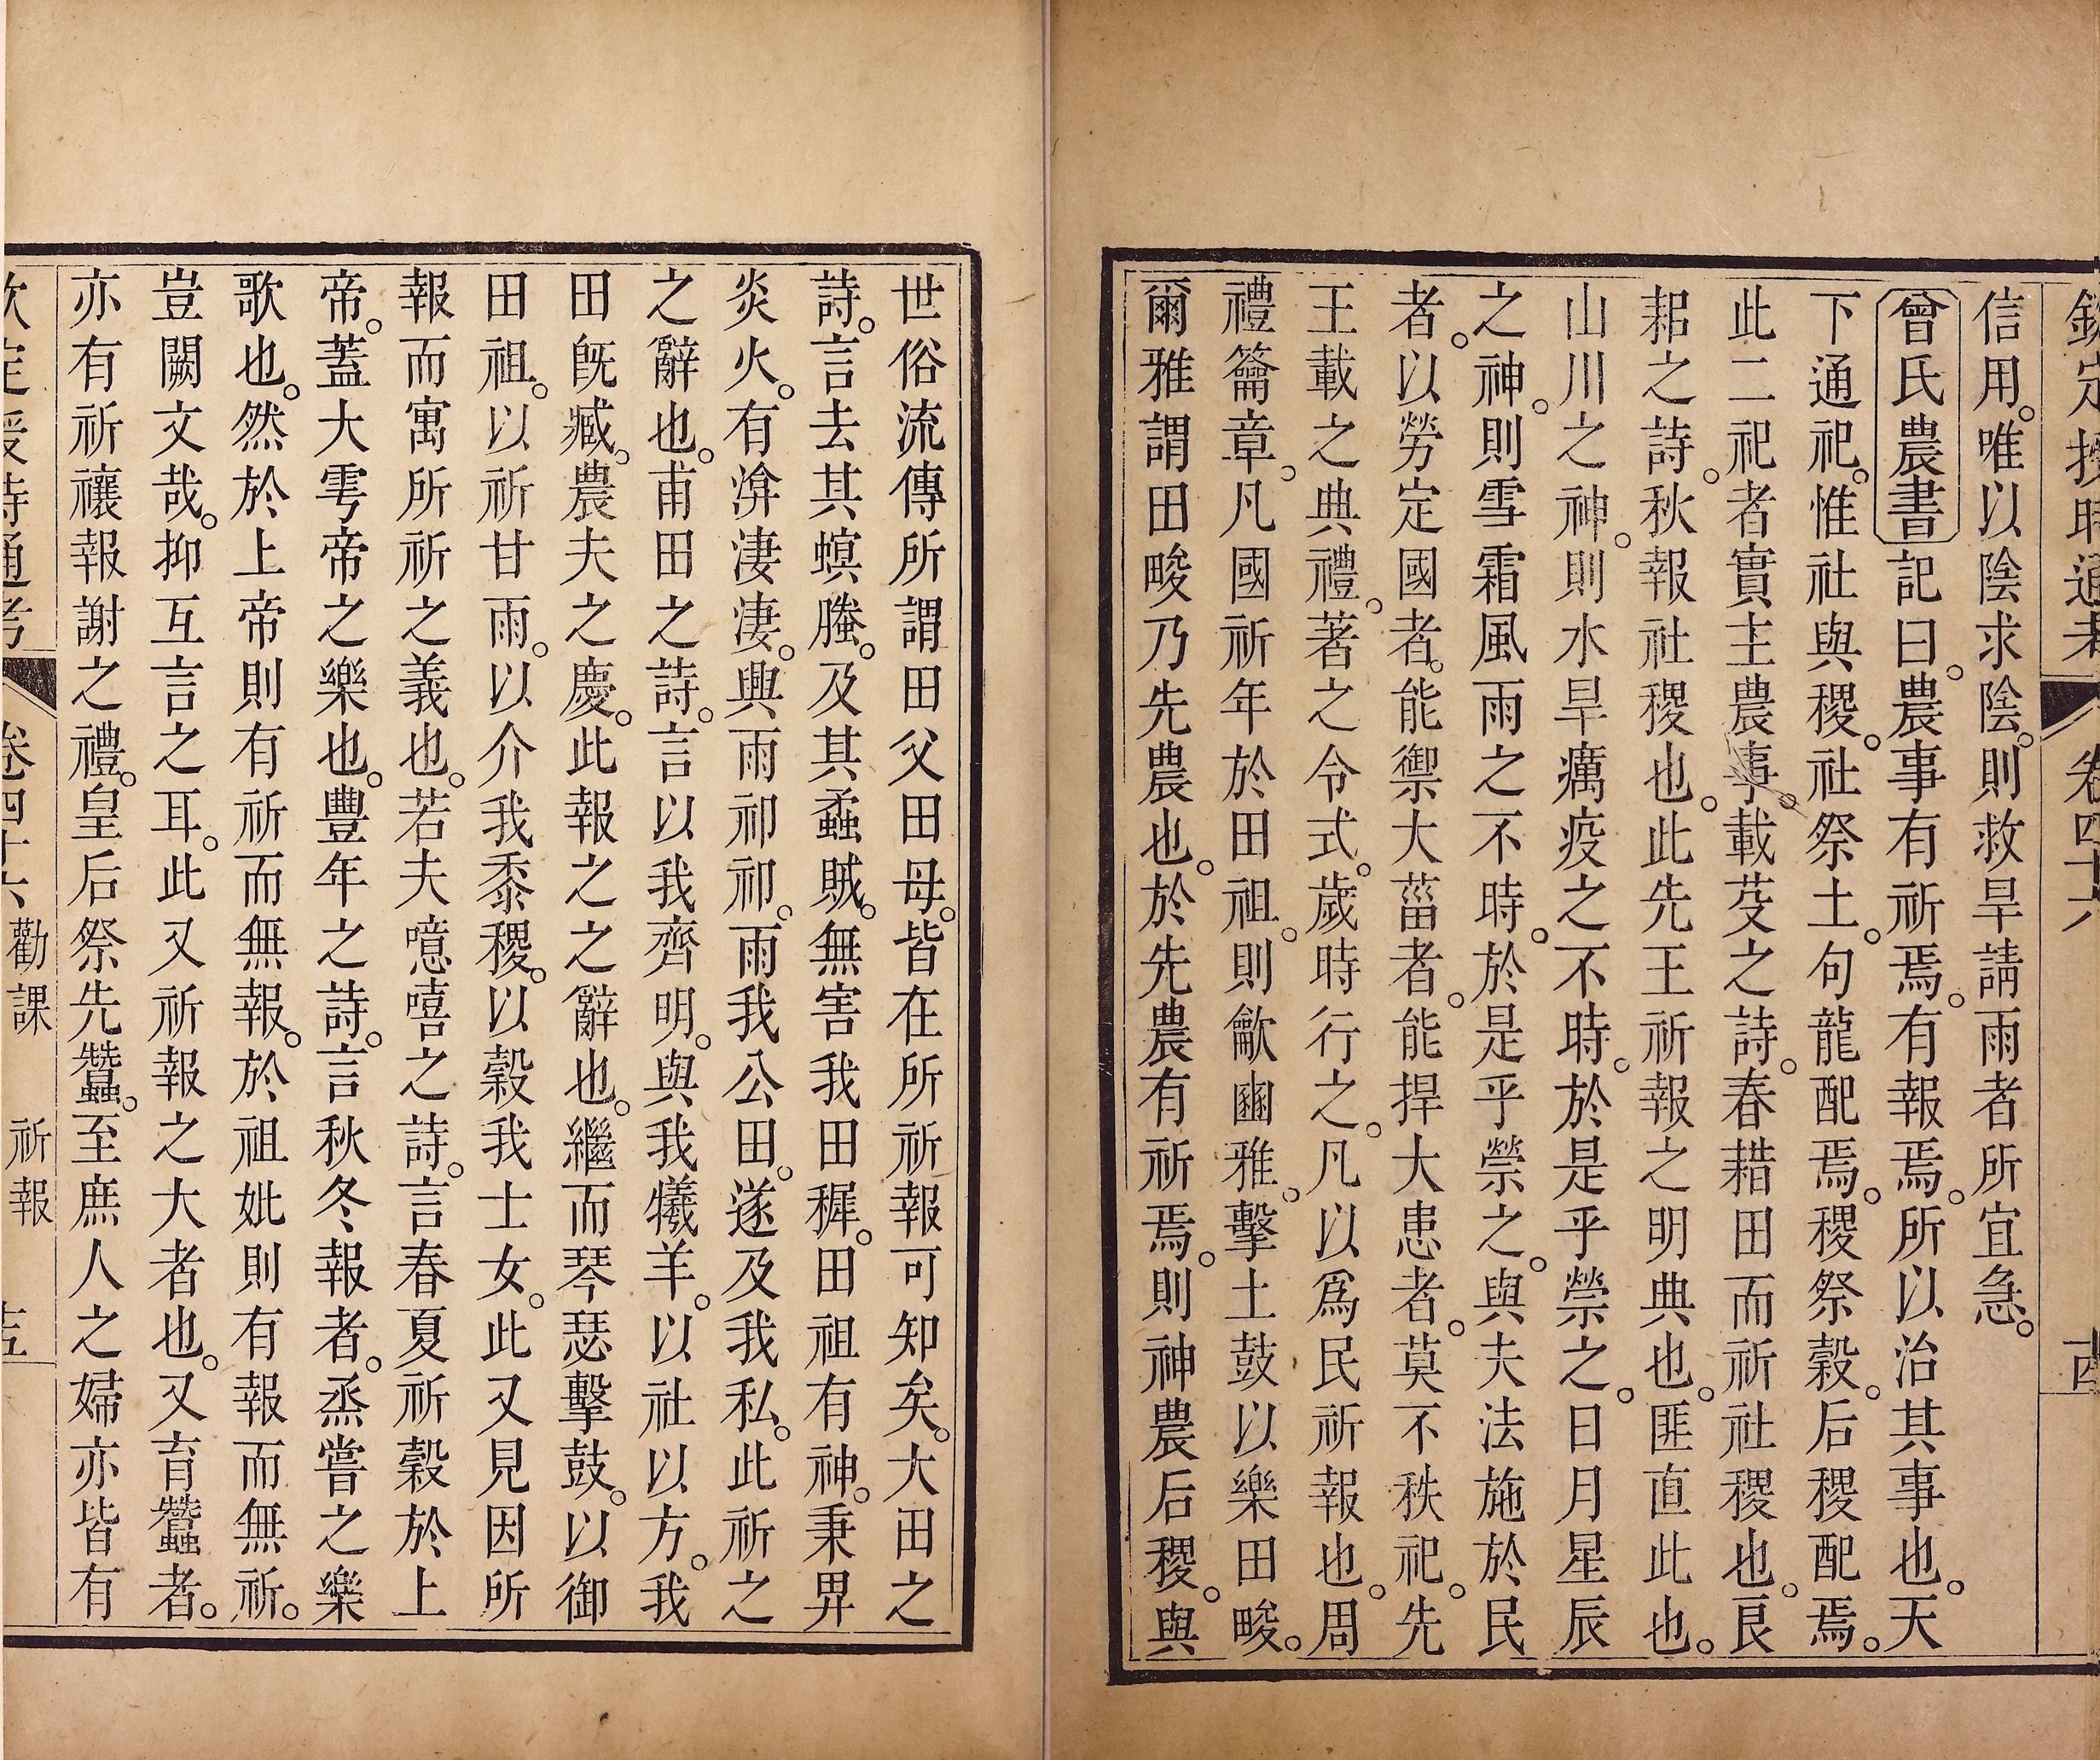 欽定授時通考 卷四十六
信用。唯以陰求陰。則救旱請雨者所宜急。
曾氏農書記曰。農事有祈焉。有報焉。所以治其事也。天
下通祀。惟社與稷。社祭土。句龍配焉。稷祭穀。后稷配焉。
此二祀者實主農事。載芟之詩。春耤田而祈社稷也。良
耜之詩。秋報社稷也。此先王祈報之明典也。匪直此也。
山川之神。則水旱癘疫之不時。於是乎禜之。日月星辰
之神。則雪霜風雨之不時。於是乎禜之。與夫法施於民
者。以勞定國者。能禦大菑者。能捍大患者。莫不秩祀。先
王載之典禮。著之令式。歲時行之。凡以爲民祈報也。周
禮籥章。凡國祈年於田祖。則龡豳雅。擊土鼓以樂田畯。
爾雅謂田畯乃先農也。於先農有祈焉。則神農后稷。與
世俗流傳所謂田父田母。皆在所祈報可知矣。大田之
詩。言去其螟螣。及其蟊賊。無害我田穉。田祖有神。秉畀
炎火。有渰淒淒。興雨祁祁。雨我公田。遂及我私。此祈之
之辭也。甫田之詩。言以我齊明。與我犧羊。以社以方。我
田旣臧。農夫之慶。此報之之辭也。繼而琴瑟擊鼓。以御
田祖。以祈甘雨。以介我黍稷。以穀我士女。此又見因所
報而寓所祈之義也。若夫噫嘻之詩。言春夏祈穀於上
帝。蓋大雩帝之樂也。豐年之詩。言秋冬報者。烝嘗之樂
歌也。然於上帝則有祈而無報。於祖妣則有報而無祈。
豈闕文哉。抑互言之耳。此又祈報之大者也。又育蠶者。
亦有祈禳報謝之禮。皇后祭先蠶。至庶人之婦亦皆有
欽定授時通考 卷四十六 勸課 祈報